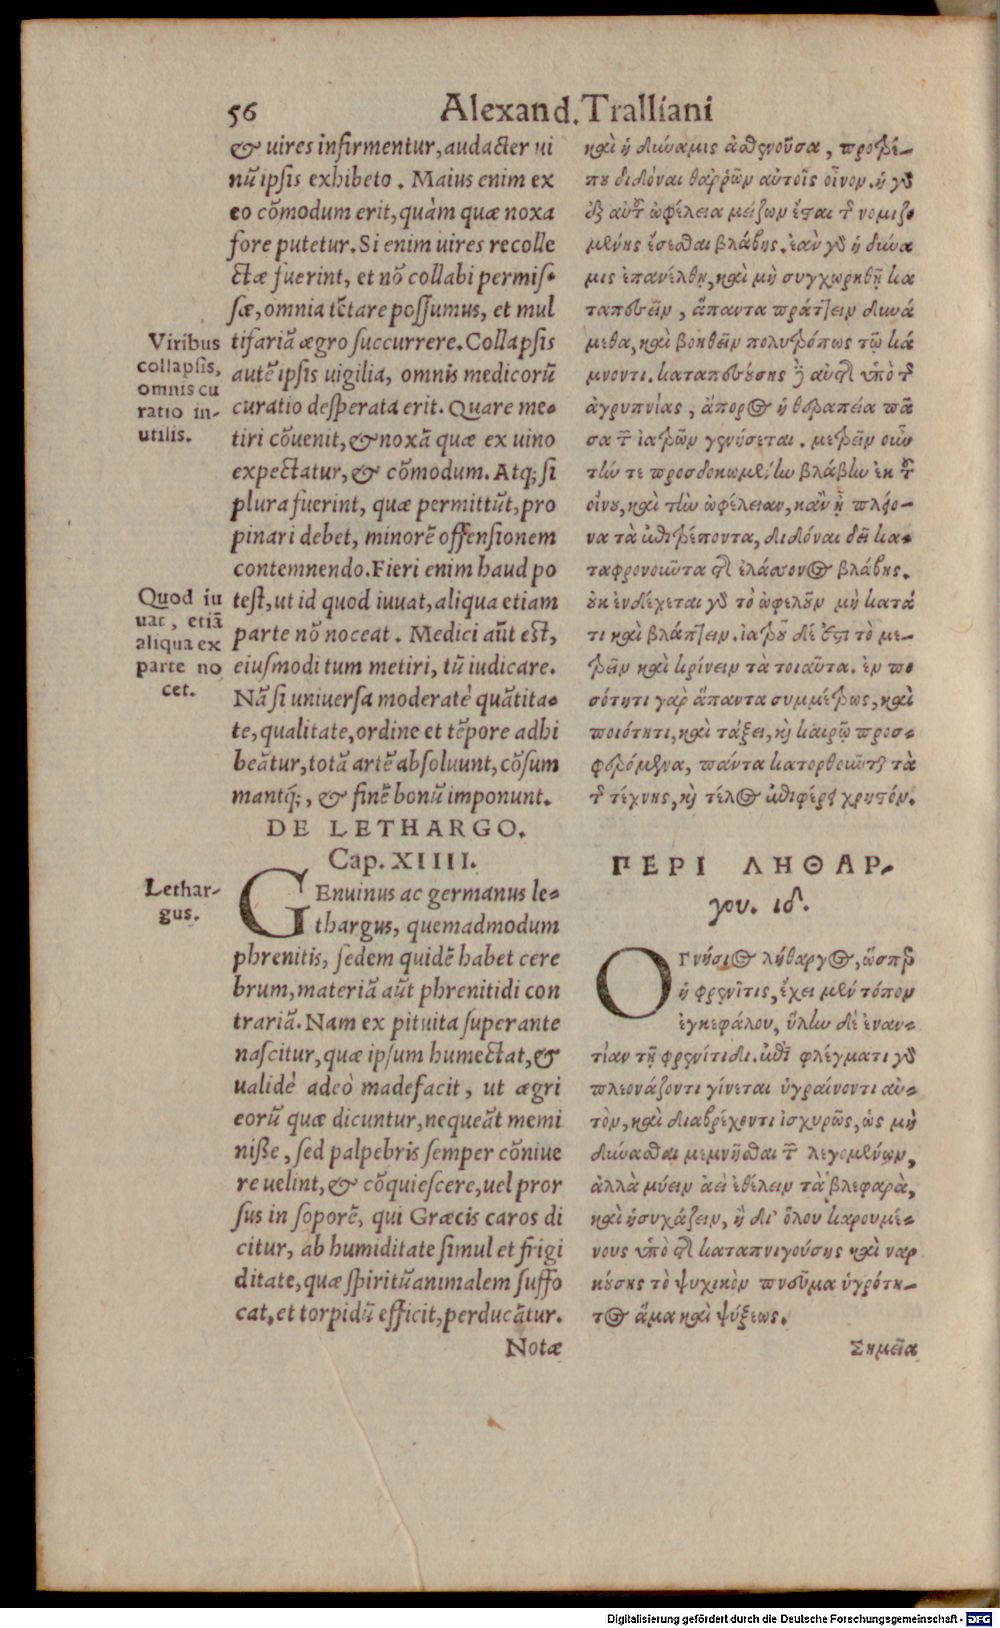 56
Alexand. Tralliani
& uires infirmentur, audacter ui
nū ipsis exhibeto. Maius enim ex
eo cōmodum erit, quàm quæ noxa
fore putetur. Si enim uires recolle
ctæ fuerint, et nō collabi permis-
sæ, omnia tētare possumus, et mul
tifariā ægro succurrere. Collapsis
autē ipsis uigilia, omnis medicorū
curatio desperata erit. Quare me-
tiri cōuenit, & noxā quæ ex uino
expectatur, & cōmodum. Atq; si
plura fuerint, quæ permittūt, pro
pinari debet, minorē offensionem
contemnendo. Fieri enim haud po
test, ut id quod iuuat, aliqua etiam
parte nō noceat. Medici aūt est,
eiusmodi tum metiri, tū iudicare.
Nā si uniuersa moderatè quātita-
te, qualitate, ordine et tēpore adhi
beātur, totā artē absoluunt, cōsum
mantq́;, & finē bonū imponunt.
Viribus
collapsis,
omnis cu
ratio in-
utilis.
Quod iu
uat, etiā
aliqua ex
parte no
cet.
DE LETHARGO.
Cap. XIIII.
Lethar-
gus.
GEnuinus ac germanus le-
thargus, quemadmodum
phrenitis, sedem quidē habet cere
brum, materiā aūt phrenitidi con
trariā. Nam ex pituita superante
nascitur, quæ ipsum humectat, &
ualidè adeò madefacit, ut ægri
eorū quæ dicuntur, nequeāt memi
nisse, sed palpebris semper cōniue
re uelint, & cōquiescere, uel pror
sus in soporē, qui Græcis caros di
citur, ab humiditate simul et frigi
ditate, quæ spiritū animalem suffo
cat, et torpidū efficit, perducātur.
Notæ
καὶ ἡ δύναμις ἀσθενοῦσα, προτρέ-
που διδόναι θαῤῥῶν αὐτοῖς οἶνον. ἡ γὸ
ἐξ αὐτῶ ὠφέλεια μείζων ἔσται τῆ νομιζο
μένης ἔσεσθαι βλάβης. ἐὰν γὸ ἡ δύνα
μις ἐπανέλθῃ, καὶ μὴ συγχωρηθῇ κα
ταπεσεῖν, ἅπαντα πράττειν δυνά
μεθα, καὶ βοηθεῖν πολυτρόπως τῷ κά
μνοντι. καταπεσούσης ϳ αὐτῆ ὑπὸ τῆ
ἀγρυπνίας, ἄπορος ἡ θεραπεία πᾶ
σα τῶ ἰατρῶν γενήσεται. μετρεῖν οὖν
τήν τε προσδοκωμένην βλάβην ἐκ τοῦ
οἴνου, καὶ τὴν ὠφέλειαν, κἂν ᾖ πλείο-
να τὰ ἐπιτρέποντα, διδόναι δεῖ κα-
ταφρονοῦντα τῆ ἐλάσσονος βλάβης.
οὐκ ἐνδέχεται γὸ τὸ ὠφελοῦν μὴ κατά
τι καὶ βλάπτειν. ἰατροῦ δέ ἐστι τὸ με-
τρεῖν καὶ κρίνειν τὰ τοιαῦτα. ἐν πο
σότητι γὰρ ἅπαντα συμμέτρως, καὶ
ποιότητι, καὶ τάξει, καὶ καιρῷ προσ-
φερόμενα, πάντα κατορθοῦται τὰ
τῆ τέχνης, καὶ τέλος ἐπιφέρει χρηστόν.
ΠΕΡΙ ΛΗΘΑΡ-
γου. ιδ.
Ο Γνήσιος λήθαργος, ὥσπερ
ἡ φρενῖτις, ἔχει μὲν τόπον
ἐγκεφάλου, ὕλην δὲ ἐναν-
τίαν τῇ φρενίτιδι. ἐπὶ φλέγματι γὸ
πλεονάζοντι γίνεται ὑγραίνοντι αὐ-
τὸν, καὶ διαβρέχοντι ἰσχυρῶς, ὡς μὴ
δύνασθαι μεμνῆσθαι τῶ λεγομένων,
ἀλλὰ μύειν ἀεὶ ἐθέλειν τὰ βλεφαρὰ,
καὶ ἡσυχάζειν, ἢ δι' ὅλου καρουμέ-
νους ὑπὸ τῆ καταπνιγούσης καὶ ναρ
κούσης τὸ ψυχικὸν πνεῦμα ὑγρότη-
τος ἅμα καὶ ψύξεως.
Σημεῖα
Digitalisierung gefördert durch die Deutsche Forschungsgemeinschaft - DFG